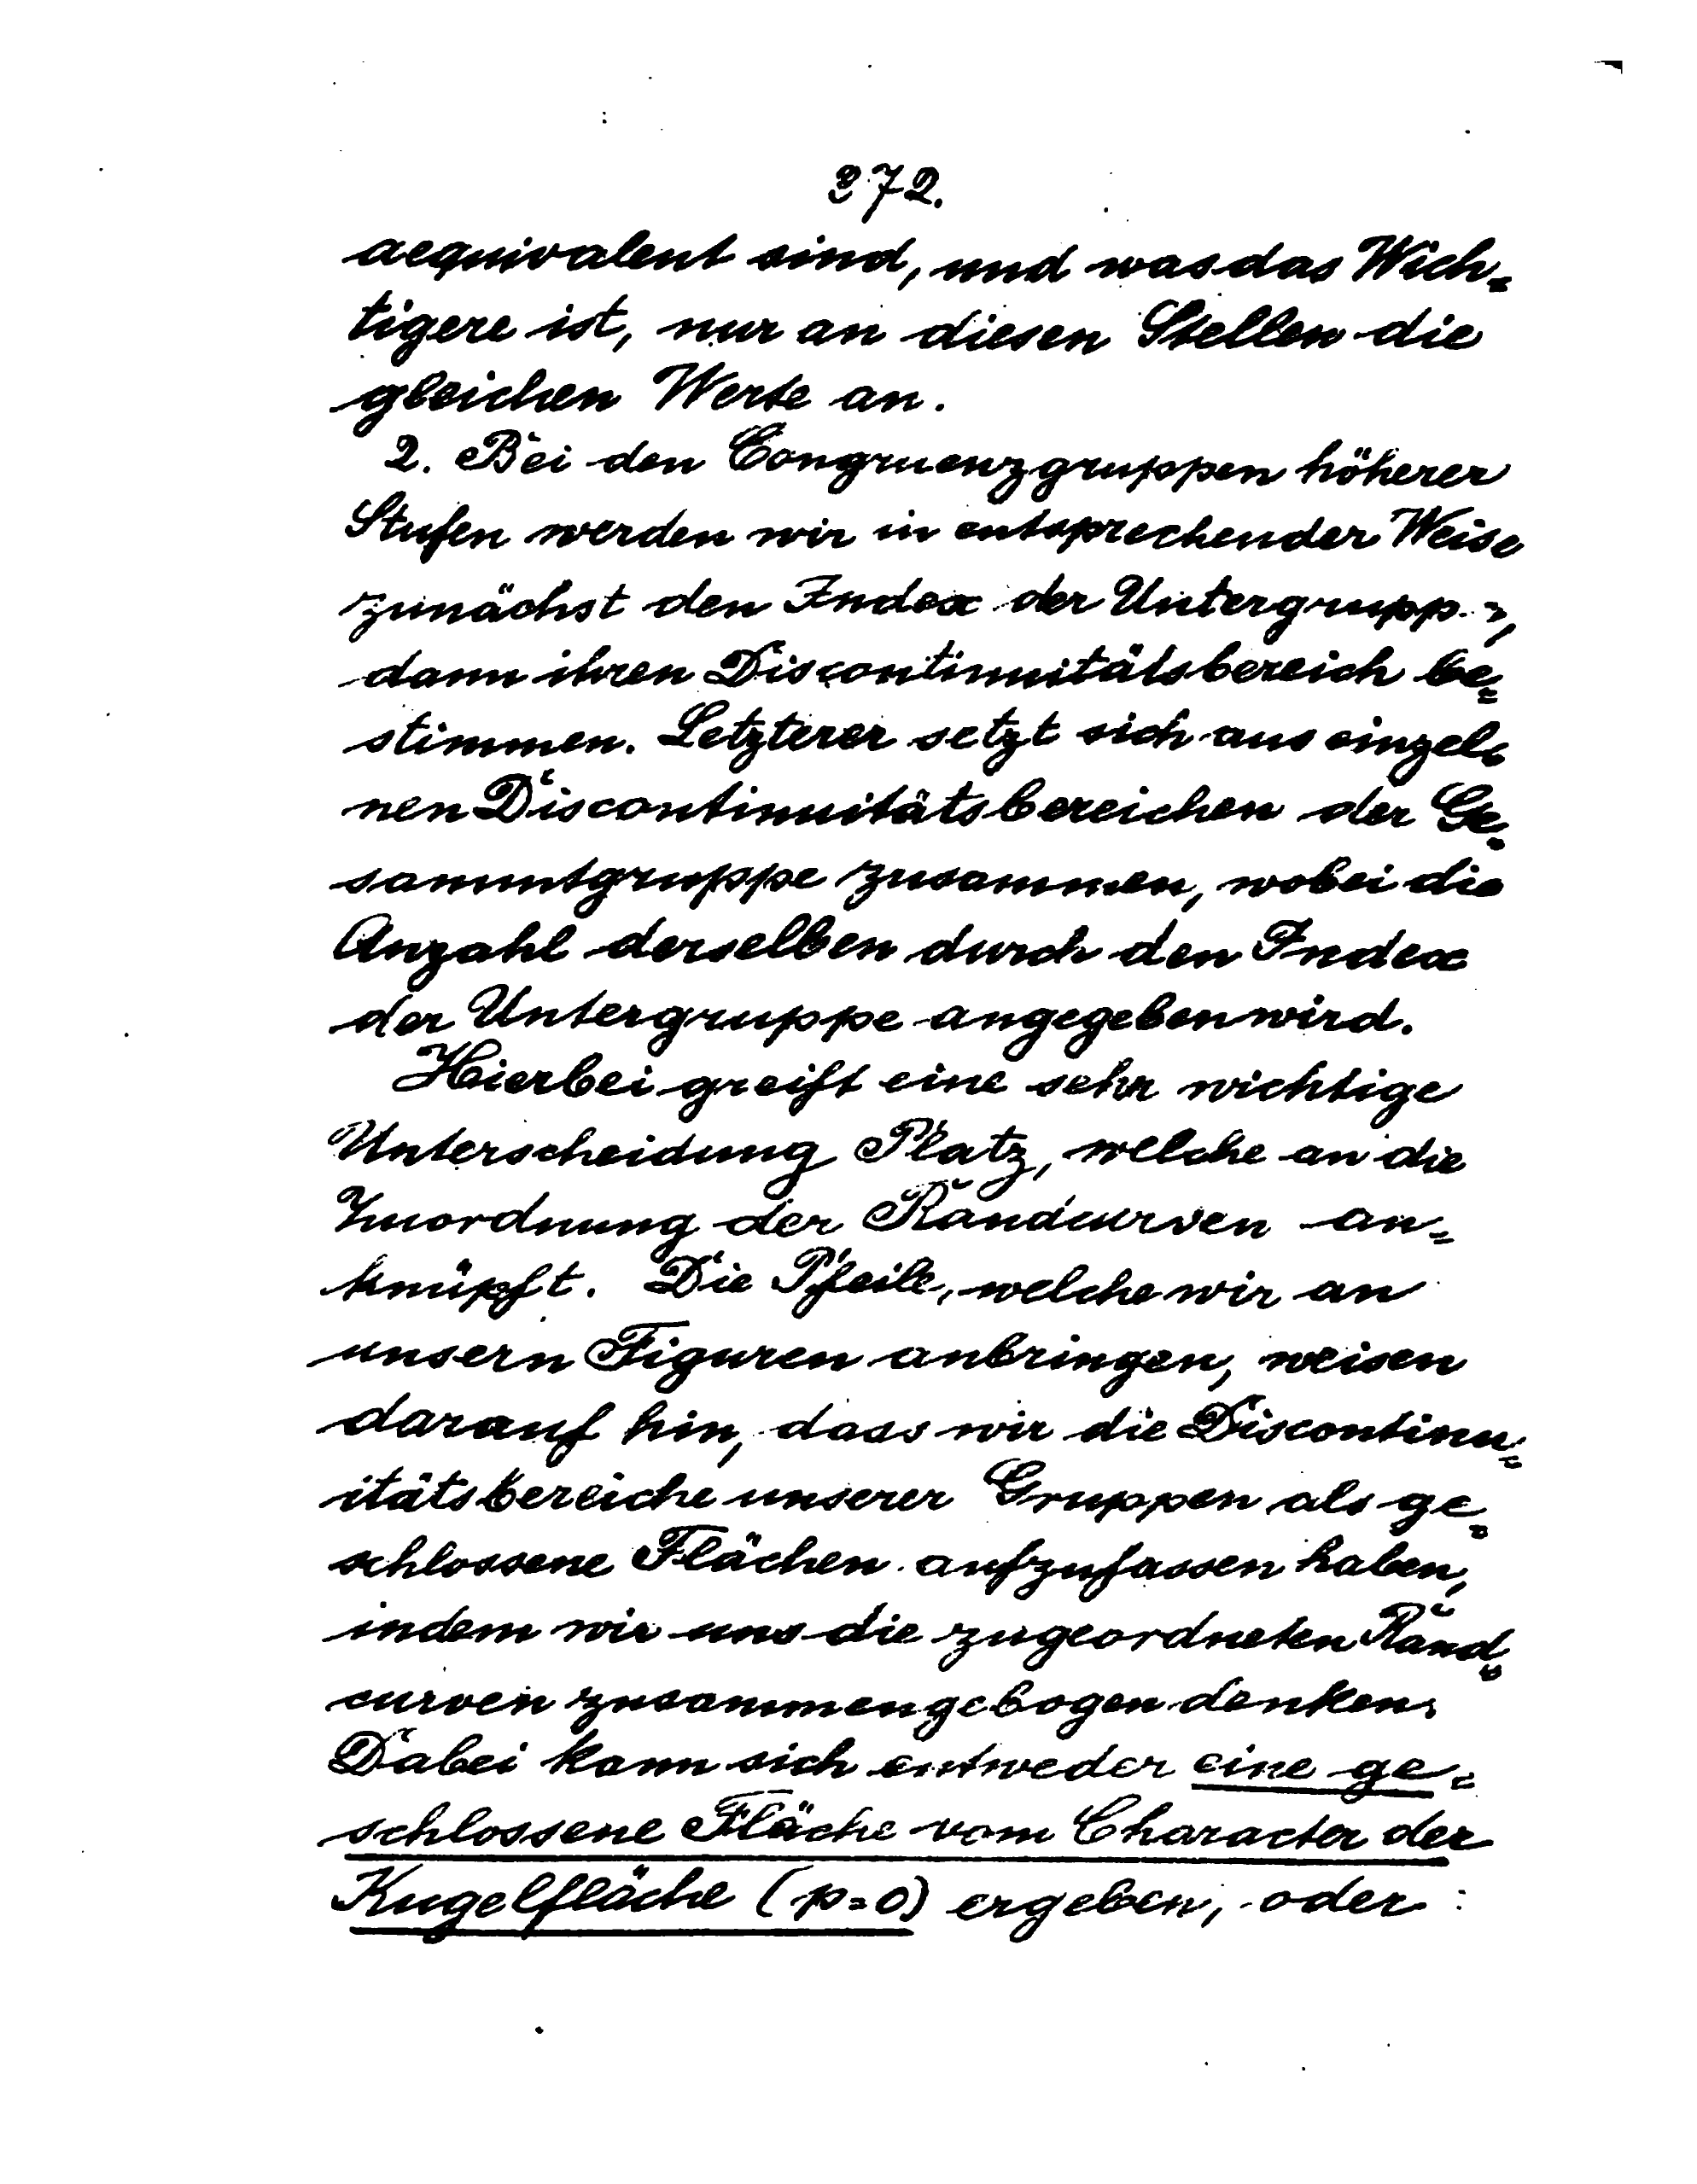 372.
aequivalent sind, und was das Wich=
tigere ist, nur an diesen Stellen die
gleichen Werte an.
2. Bei den Congruenzgruppen höherer
Stufen werden wir in entsprechender Weise
zunächst den Index der
dann ihren Discontinuitätsbereich be=
stimmen. Letzterer setzt sich aus einzel=
nen Discontinuitätsbereichen der Ge=
sammtgruppe zusammen, wobei die
Anzahl derselben durch den Index
der Untergruppe angegeben wird.
Hierbei greift eine sehr wichtige
Unterscheidung Platz, welche an die
Zuordnung der Randcurven an=
knüpft. Die Pfeile, welche wir an
unsern Figuren anbringen, weisen
darauf hin, dass wir die Discontinu=
itätsbereiche unserer Gruppen als ge=
schlossene Flächen aufzufassen haben,
indem wir uns die zugeordneten Rand=
curven zusammengebogen denken.
Dabei kann sich entweder eine ge=
schlossene Fläche vom Character der
Kugelfläche (p=0) ergeben, oder